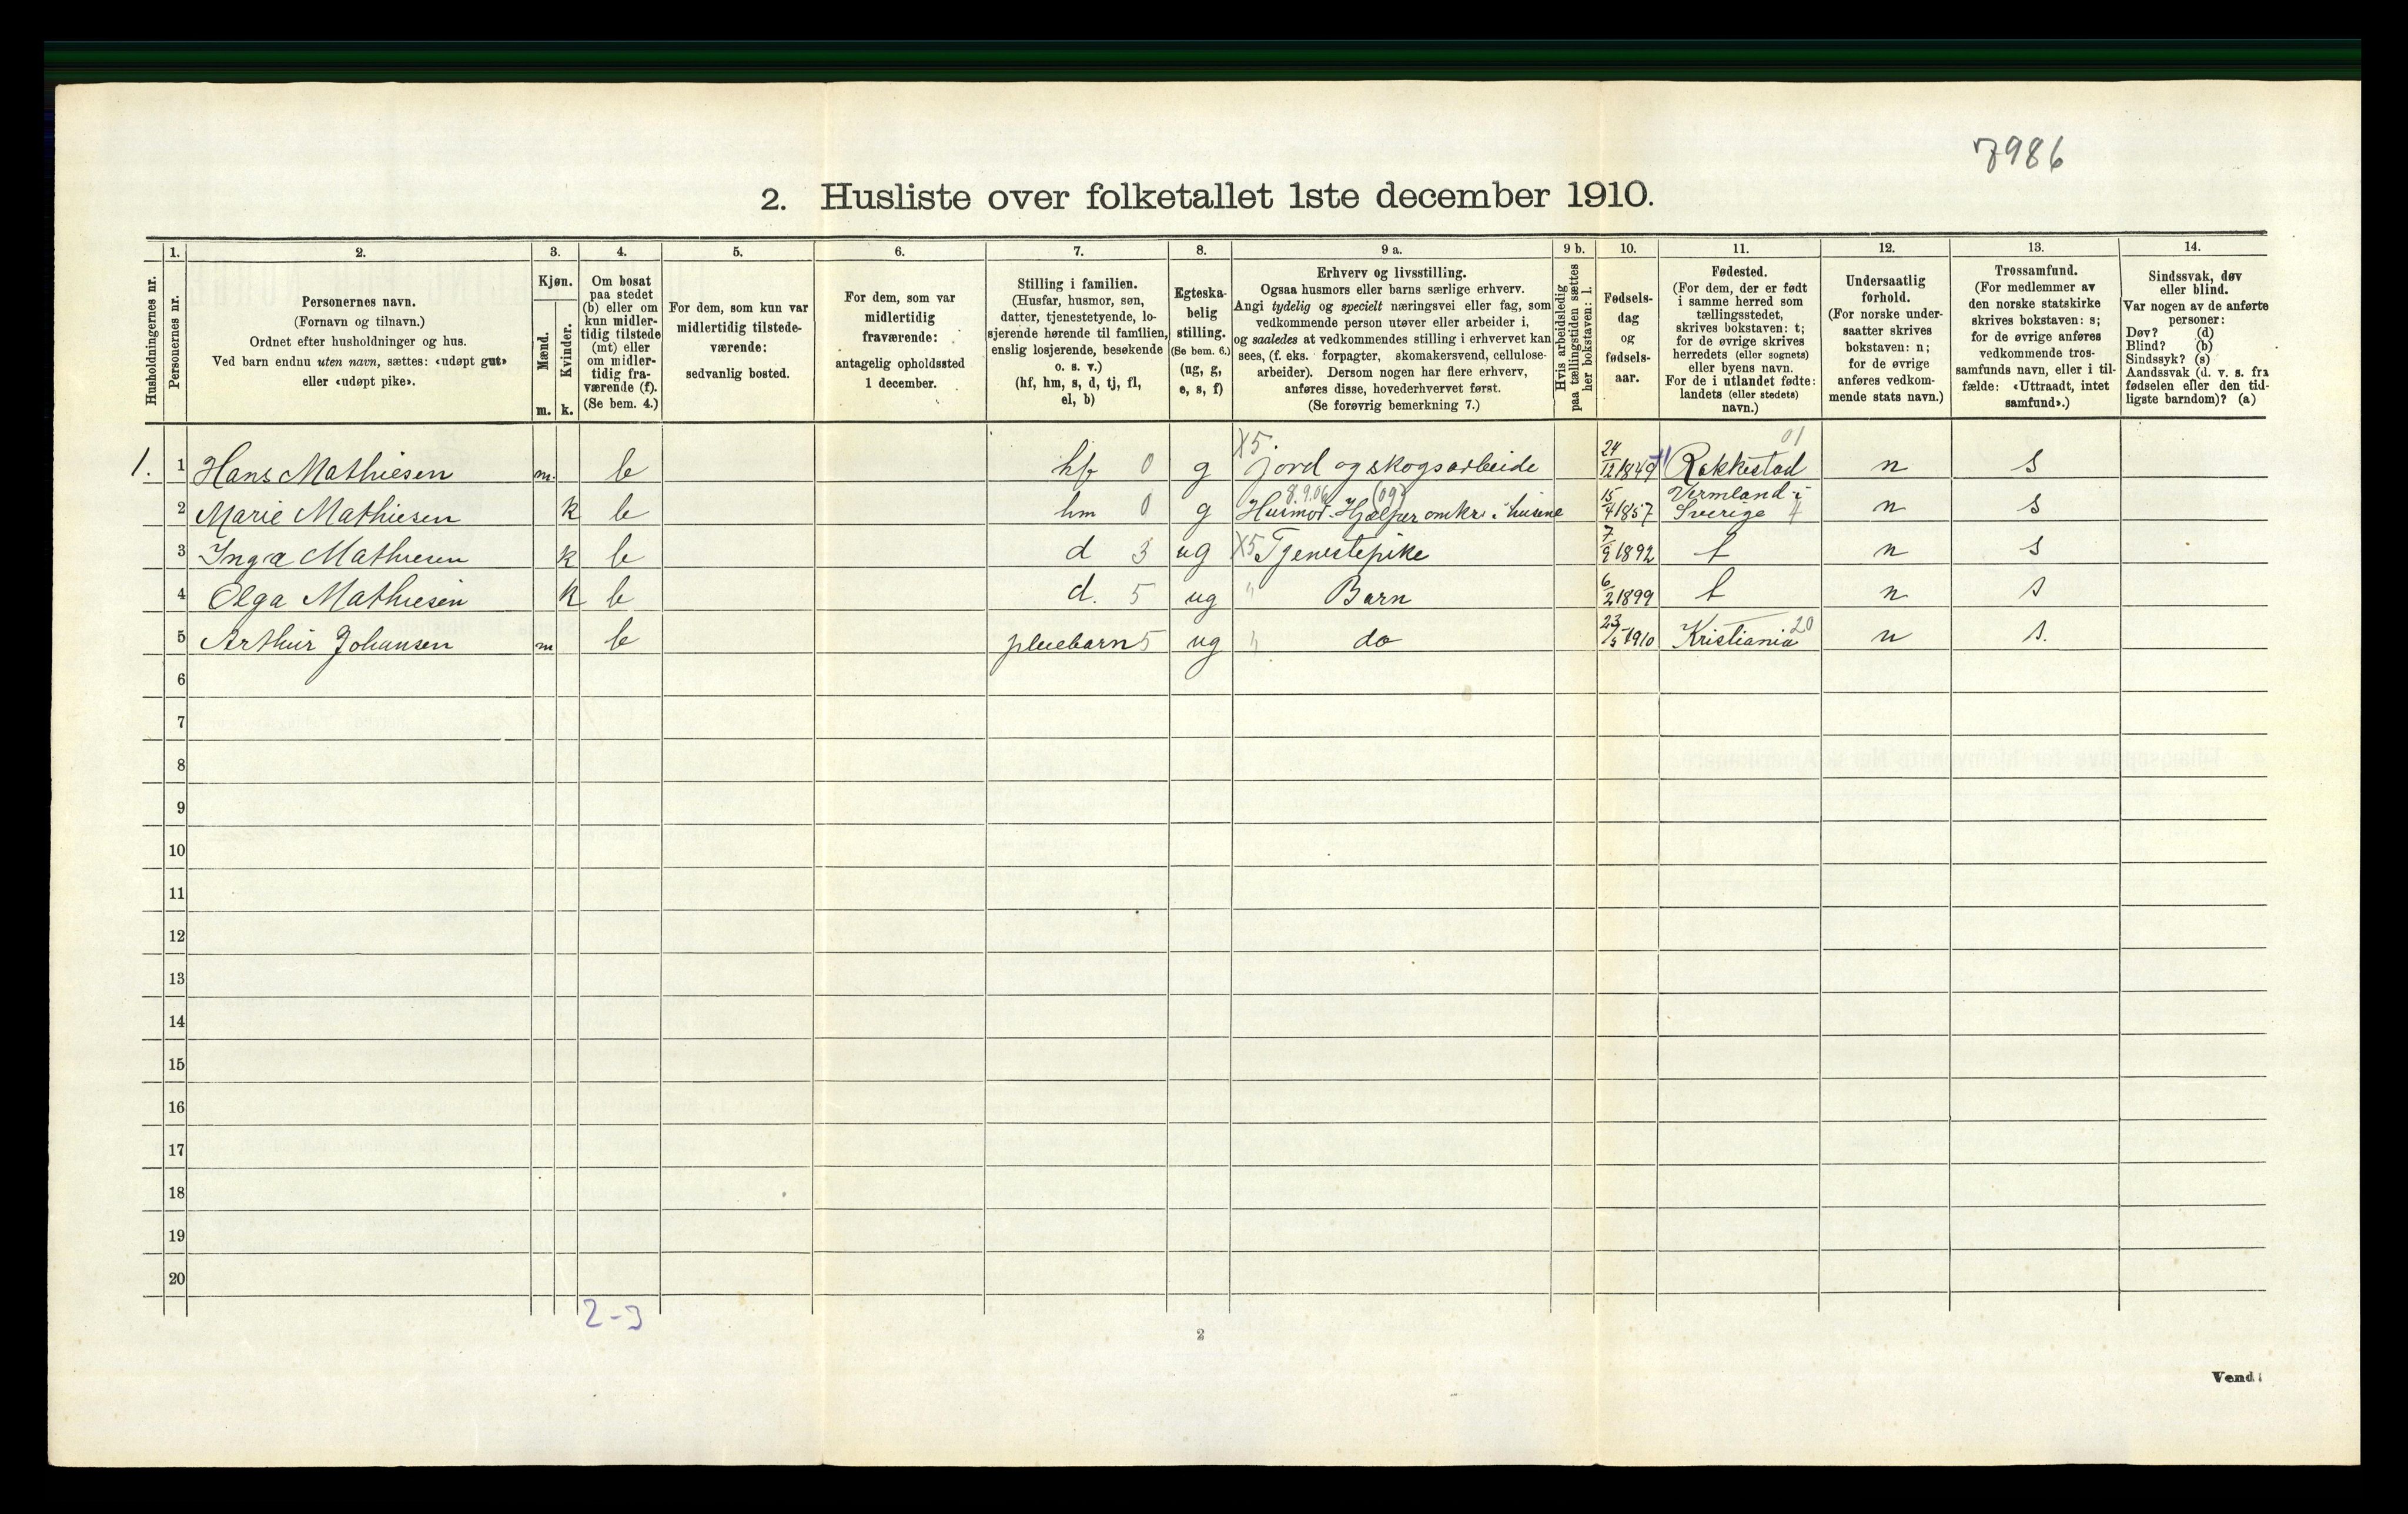 7986
2. Husliste over folketallet 1ste december 1910.
Husholdningernes nr.
1.
Personernes nr.
2.
Personernes navn.
(Fornavn og tilnavn.)
Ordnet efter husholdninger og hus.
Ved barn endnu uten navn, sættes: «udøpt gut»
eller «udøpt pike».
3.
Kjøn.
Mænd.
m.
Kvinder.
k.
4.
Om bosat
paa stedet
(b) eller om
kun midler-
tidig tilstede
(mt) eller
om midler-
tidig fra-
værende (f).
(Se bem. 4.)
5.
For dem, som kun var
midlertidig tilstede-
værende:
sedvanlig bosted.
6.
For dem, som var
midlertidig
fraværende:
antagelig opholdssted
1 december.
7.
Stilling i familien.
(Husfar, husmor, søn,
datter, tjenestetyende, lo-
sjerende hørende til familien,
enslig losjerende, besøkende
o. s. v.)
(hf, hm, s, d, tj, fl,
el, b)
8.
Egteska-
belig
stilling.
(Se bem. 6.)
(ug, g,
e, s, f)
9 a.
Erhverv og livsstilling.
Ogsaa husmors eller barns særlige erhverv.
Angi tydelig og specielt næringsvei eller fag, som
vedkommende person utøver eller arbeider i,
og saaledes at vedkommendes stilling i erhvervet kan
sees, (f. eks. forpagter, skomakersvend, cellulose-
arbeider). Dersom nogen har flere erhverv,
anføres disse, hovederhvervet først.
(Se forøvrig bemerkning 7.)
9 b.
Hvis arbeidsledig
paa tællingstiden sættes
her bokstaven: l.
10.
Fødsels-
dag
og
fødsels-
aar.
11.
Fødested.
(For dem, der er født
i samme herred som
tællingsstedet,
skrives bokstaven: t;
for de øvrige skrives
herredets (eller sognets)
eller byens navn.
For de i utlandet fødte:
landets (eller stedets)
navn.)
12.
Undersaatlig
forhold.
(For norske under-
saatter skrives
bokstaven: n;
for de øvrige
anføres vedkom-
mende stats navn.)
13.
Trossamfund.
(For medlemmer av
den norske statskirke
skrives bokstaven: s;
for de øvrige anføres
vedkommende tros-
samfunds navn, eller i til-
fælde: «Uttraadt, intet
samfund».)
14.
Sindssvak, døv
eller blind.
Var nogen av de anførte
personer:
Døv? (d)
Blind? (b)
Sindssyk? (s)
Aandssvak (d. v. s. fra
fødselen eller den tid-
ligste barndom)? (a)
1. 1 Hans Mathiesen m. b hf 0 g X5 jord og skogsarbeide 24/12 1849 Rakkestad 01 n s
2 Marie Mathiesen k b hm 0 g Husmor. Hjælper omkr. i husene 8.9.06 (09) 15/4 1857 Vermland i Sverige n s
3 Inga Mathiesen k b d 3 ug X5 Tjenestepike 7/9 1892 t n s
4 Olga Mathiesen k b d. 5 ug " Barn 6/2 1899 t n s
5 Arthur Johansen m b pleiebarn 5 ug " do 23/5 1910 Kristiania 20 n s.
6
7
8
9
10
11
12
13
14
15
16
17
18
19
20
2-3
2
Vend!